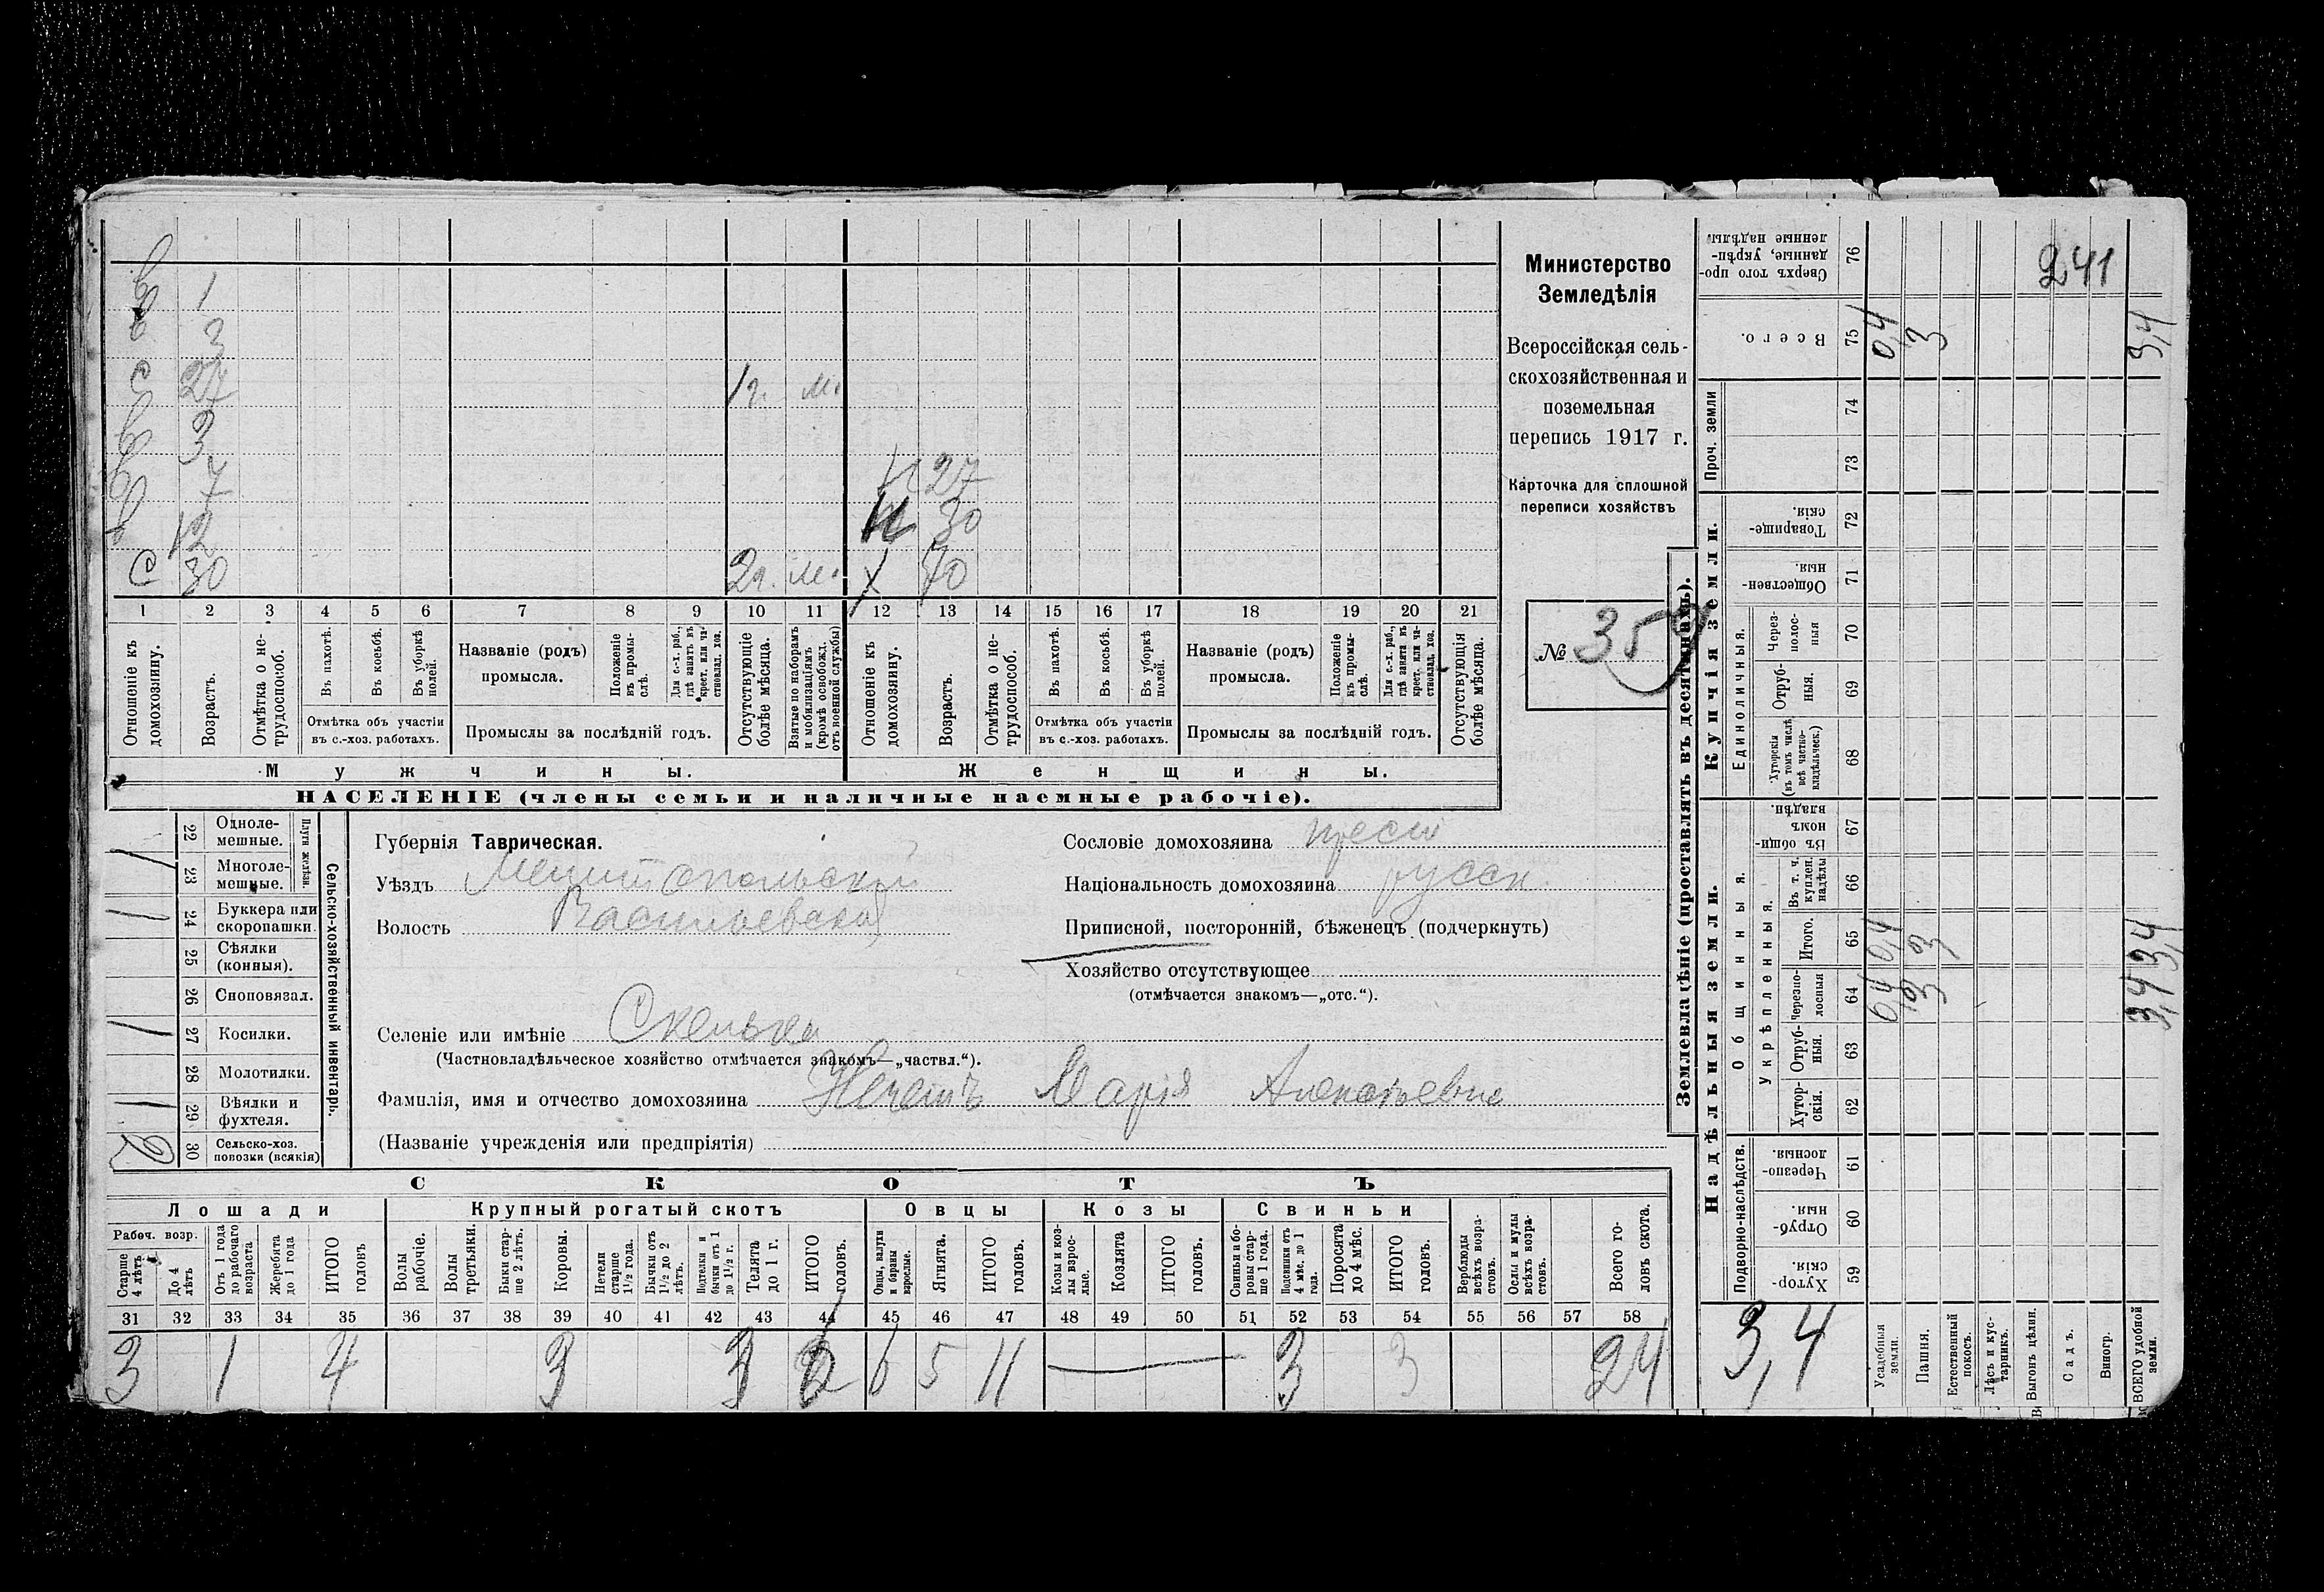 в 1
в 3
с 27 1 г. м.
в 3
в 7 н 27
в 12 н 30
с 30 2 г. м. х 70
1 2 3 4 5 6 7 8 9 10 11 12 13 14 15 16 17 18 19 20 21
Отношеніе къ домохозяину.
Возрастъ.
Отмѣтка о нетрудоспособ.
Въ пахотѣ.
Въ косьбѣ.
Въ уборкѣ полей.
Отмѣтка объ участіи въ с.-хоз. работахъ.
Названіе (родъ) промысла.
Положеніе въ промыслѣ.
Для с.-х. раб., гдѣ занятъ въ крест. или частновлад. хоз.
Промыслы за послѣдній годъ.
Отсутствующіе болѣе мѣсяца.
Взятые по наборамъ и мобилизаціямъ (кромѣ освобожд. отъ военной службы)
Отношеніе къ домохозяину.
Возрастъ.
Отмѣтка о нетрудоспособ.
Въ пахотѣ.
Въ косьбѣ.
Въ уборкѣ полей.
Отмѣтка объ участіи въ с.-хоз. работахъ.
Названіе (родъ) промысла.
Положеніе въ промыслѣ.
Для с.-х. раб., гдѣ занята въ крест. или частновлад. хоз.
Промыслы за послѣдній годъ.
Отсутствующія болѣе мѣсяца.
Мужчины.
Женщины.
НАСЕЛЕНІЕ (члены семьи и наличные наемные рабочіе).
Министерство
Земледѣлія
Всероссійская сель-
скохозяйственная и
поземельная
перепись 1917 г.
Карточка для сплошной
переписи хозяйствъ
№ 359
Сельско-хозяйственный инвентарь.
Плуги желѣзн.
22 Одноле-
мешные.
1 23 Многоле-
мешные.
1 24 Буккера или
скоропашки.
25 Сѣялки
(конныя).
26 Сноповязал.
1 27 Косилки.
28 Молотилки.
1 29 Вѣялки и
фухтеля.
2 30 Сельско-хоз.
повозки (всякія)
Губернія Таврическая.
Уѣздъ Мелитопольскій
Волость Васильевская
Сословіе домохозяина кресн
Національность домохозяина русск.
Приписной, посторонній, бѣженецъ (подчеркнуть)
Хозяйство отсутствующее
(отмѣчается знакомъ—„отс.“).
Селеніе или имѣніе Скельки
(Частновладѣльческое хозяйство отмѣчается знакомъ—„частвл.“).
Фамилія, имя и отчество домохозяина Нечетъ Марія
(Названіе учрежденія или предпріятія)
СКОТЪ
Лошади
Крупный рогатый скотъ
Овцы
Козы
Свиньи
Рабоч. возр.
Старше 4 лѣтъ
До 4 лѣтъ
Отъ 1 года до рабочаго возраста
Жеребята до 1 года
ИТОГО головъ
Волы рабочіе.
Волы третьяки.
Быки старше 2 лѣтъ.
Коровы.
Нетели старше 1½ года.
Бычки отъ 1½ до 2 лѣтъ.
Подтелки и бычки отъ 1 до 1½ г.
Телята до 1 г.
ИТОГО головъ.
Овцы, валухи и бараны взрослые.
Ягнята.
ИТОГО головъ.
Козы и козлы взрослые.
Козлята
ИТОГО головъ.
Свиньи и боровы старше 1 года.
Подсвинки отъ 4 мѣс. до 1 года.
Поросята до 4 мѣс.
ИТОГО головъ.
Верблюды всѣхъ возрастовъ.
Ослы и мулы всѣхъ возрастовъ.
Всего головъ скота.
31 32 33 34 35 36 37 38 39 40 41 42 43 44 45 46 47 48 49 50 51 52 53 54 55 56 57 58
3 1 4 3 3 6 6 5 11 3 3 24
Землевладѣніе (проставлять въ десятинахъ).
Надѣльныя земли.
Купчія земли.
Проч. земли
Подворно-наслѣдств.
Общинныя.
Укрѣпленныя.
Единоличныя.
Хуторскія. 59
Отрубныя. 60
Черезполосныя. 61
Хуторскія. 62
Отрубныя. 63
Черезполосныя 64 0,4 3 3,4
Итого. 65 0,4 3 3,4
Въ т. ч. куплен. надѣлы 66
Въ общинномъ владѣн. 67
Хуторскія (въ томъ числѣ всѣ частновладѣльческ.) 68
Отрубныя. 69
Черезполосныя 70
Общественныя. 71
Товарищескія. 72
73
74
Всего. 75 0,4 3 3,4
Сверхъ того проданные, укрѣпленные надѣлы 76
241
3,4
Усадебныя земли.
Пашня.
Естественный покосъ.
Лѣсъ и кустарникъ.
Выгонъ цѣлин.
Садъ.
Виногр.
ВСЕГО удобной земли.